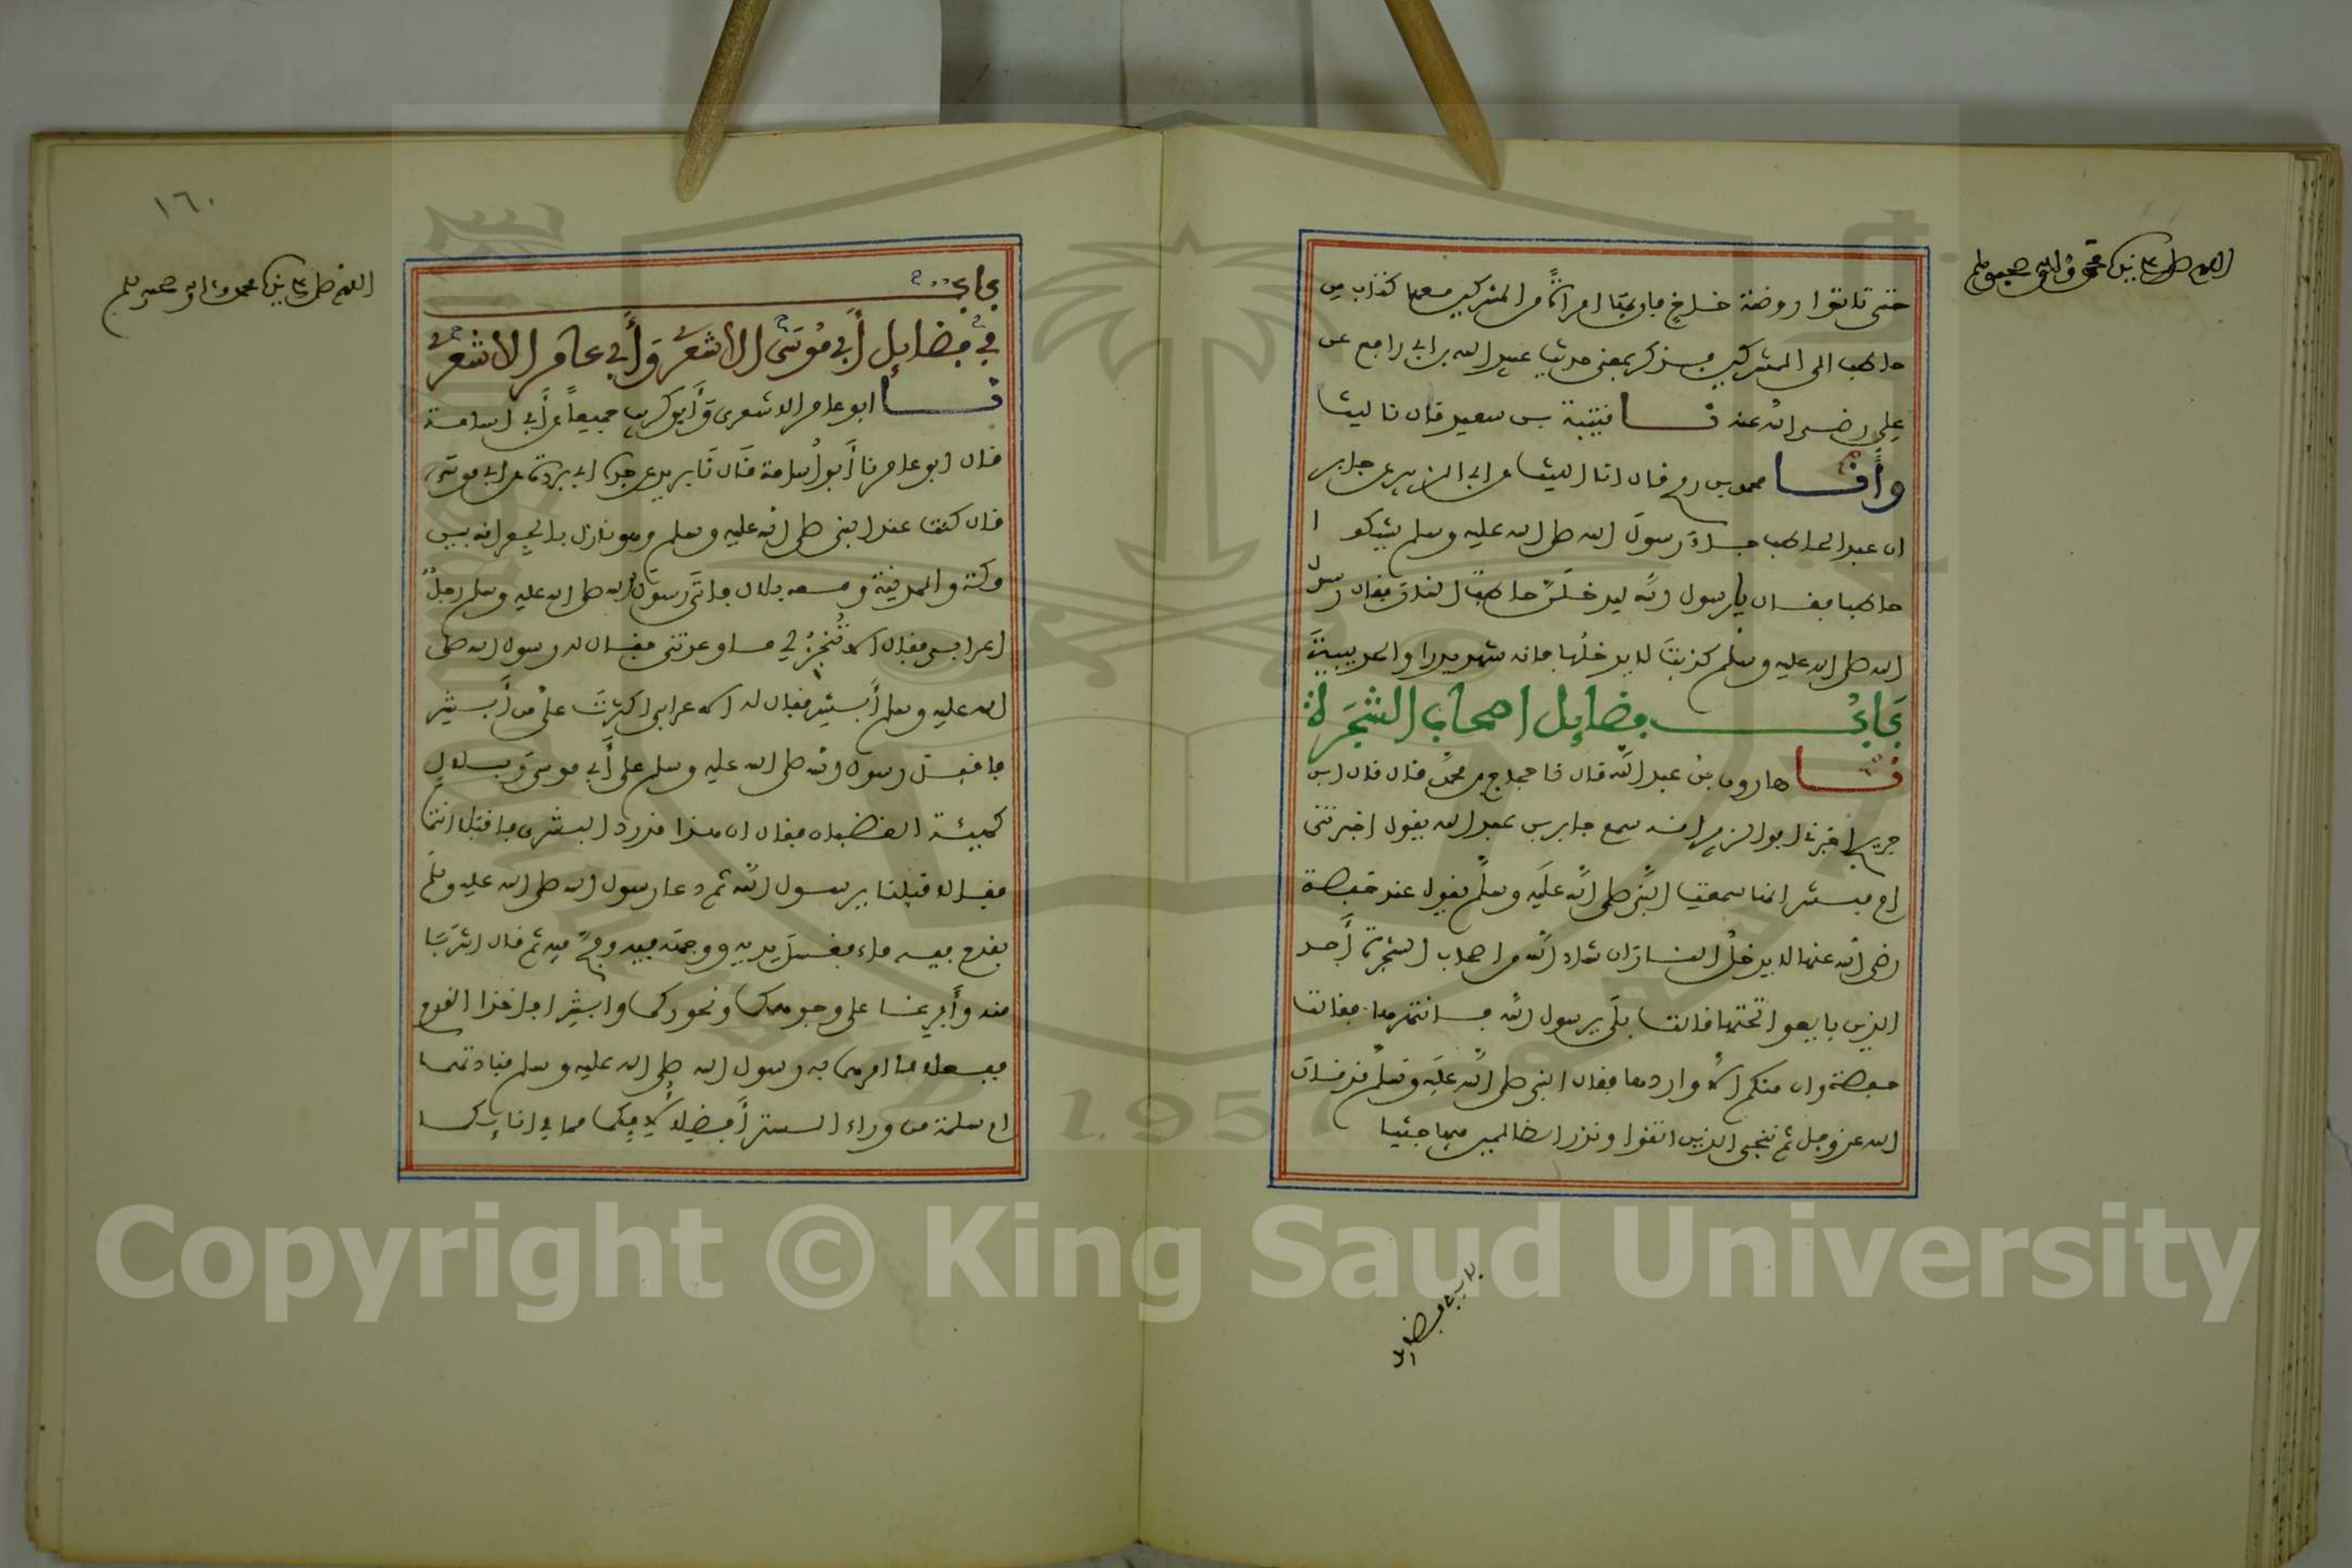 اللهم صل على نبينا محمد وآله وصحبه وسلم
حتى تاتوا روضة خاخ فان بها امراة من المشركين معها كتاب من
حاطب الى المشركين فذكر بمعنى حديث عبيد الله بن ابي رافع عن
علي رضي الله عنه نا قتيبة بن سعيد قال نا ليث
وأنا محمد بن رمح قال انا الليث عن ابي الزبير عن جابر
ان عبدا لحاطب جاء رسول الله صلى الله عليه وسلم يشكوا
حاطبا فقال يا رسول الله ليدخلن حاطب النار فقال رسول
الله صلى الله عليه وسلم كذبت لا يدخلها فانه شهد بدرا والحديبية
باب فضايل اصحاب الشجرة
نا هارون بن عبد الله قال نا حجاج بن محمد قال قال ابن
جريج اخبرني ابو الزبير انه سمع جابر بن عبد الله يقول اخبرتني
ام مبشر انها سمعت النبي صلى الله عليه وسلم يقول عند حفصة
رضي الله عنها لا يدخل النار ان شاء الله من اصحاب الشجرة أحد
الذين بايعوا تحتها قالت بلى يرسول الله فانتهرها فقالت
حفصة وان منكم الا واردها فقال النبي صلى الله عليه وسلم قد قال
الله عز وجل ثم ننجي الذين اتقوا ونذر الظالمين فيها جثيا
باب فضايل
١٦٠
اللهم صل على نبينا محمد وآله وصحبه وسلم
باب
في فضايل أبي موسى الاشعري وأبي عامر الاشعري
نا ابو عامر الاشعري وأبو كريب جميعا عن أبي اسامة
قال ابو عامر نا أبو أسامة قال نا بريد عن جده ابي بردة عن ابي موسى
قال كنت عند النبي صلى الله عليه وسلم وهو نازل بالجعرانه بين
مكة والمدينة ومعه بلال فاتى رسول الله صلى الله عليه وسلم رجل
اعرابي فقال الا تنجز لي ما وعدتني فقال له رسول الله صلى
الله عليه وسلم أبشر فقال له الاعرابي اكثرت علي من أبشر
فاقبل رسول الله صلى الله عليه وسلم على أبي موسى وبلال
كهيئة الغضبان فقال ان هذا قد رد البشرى فاقبلا انتما
فقالا قبلنا يرسول الله ثم دعا رسول الله صلى الله عليه وسلم
بقدح فيه ماء فغسل يديه ووجهه فيه ومج فيه ثم قال اشربا
منه وأفرغا على وجوهكما ونحوركما وابشرا فاخذا القدح
ففعلا ما امرهما به رسول الله صلى الله عليه وسلم فنادتهما
ام سلمة من وراء الستر أفضلا لامكما مما في انايكما
Copyright © King Saud University
1957